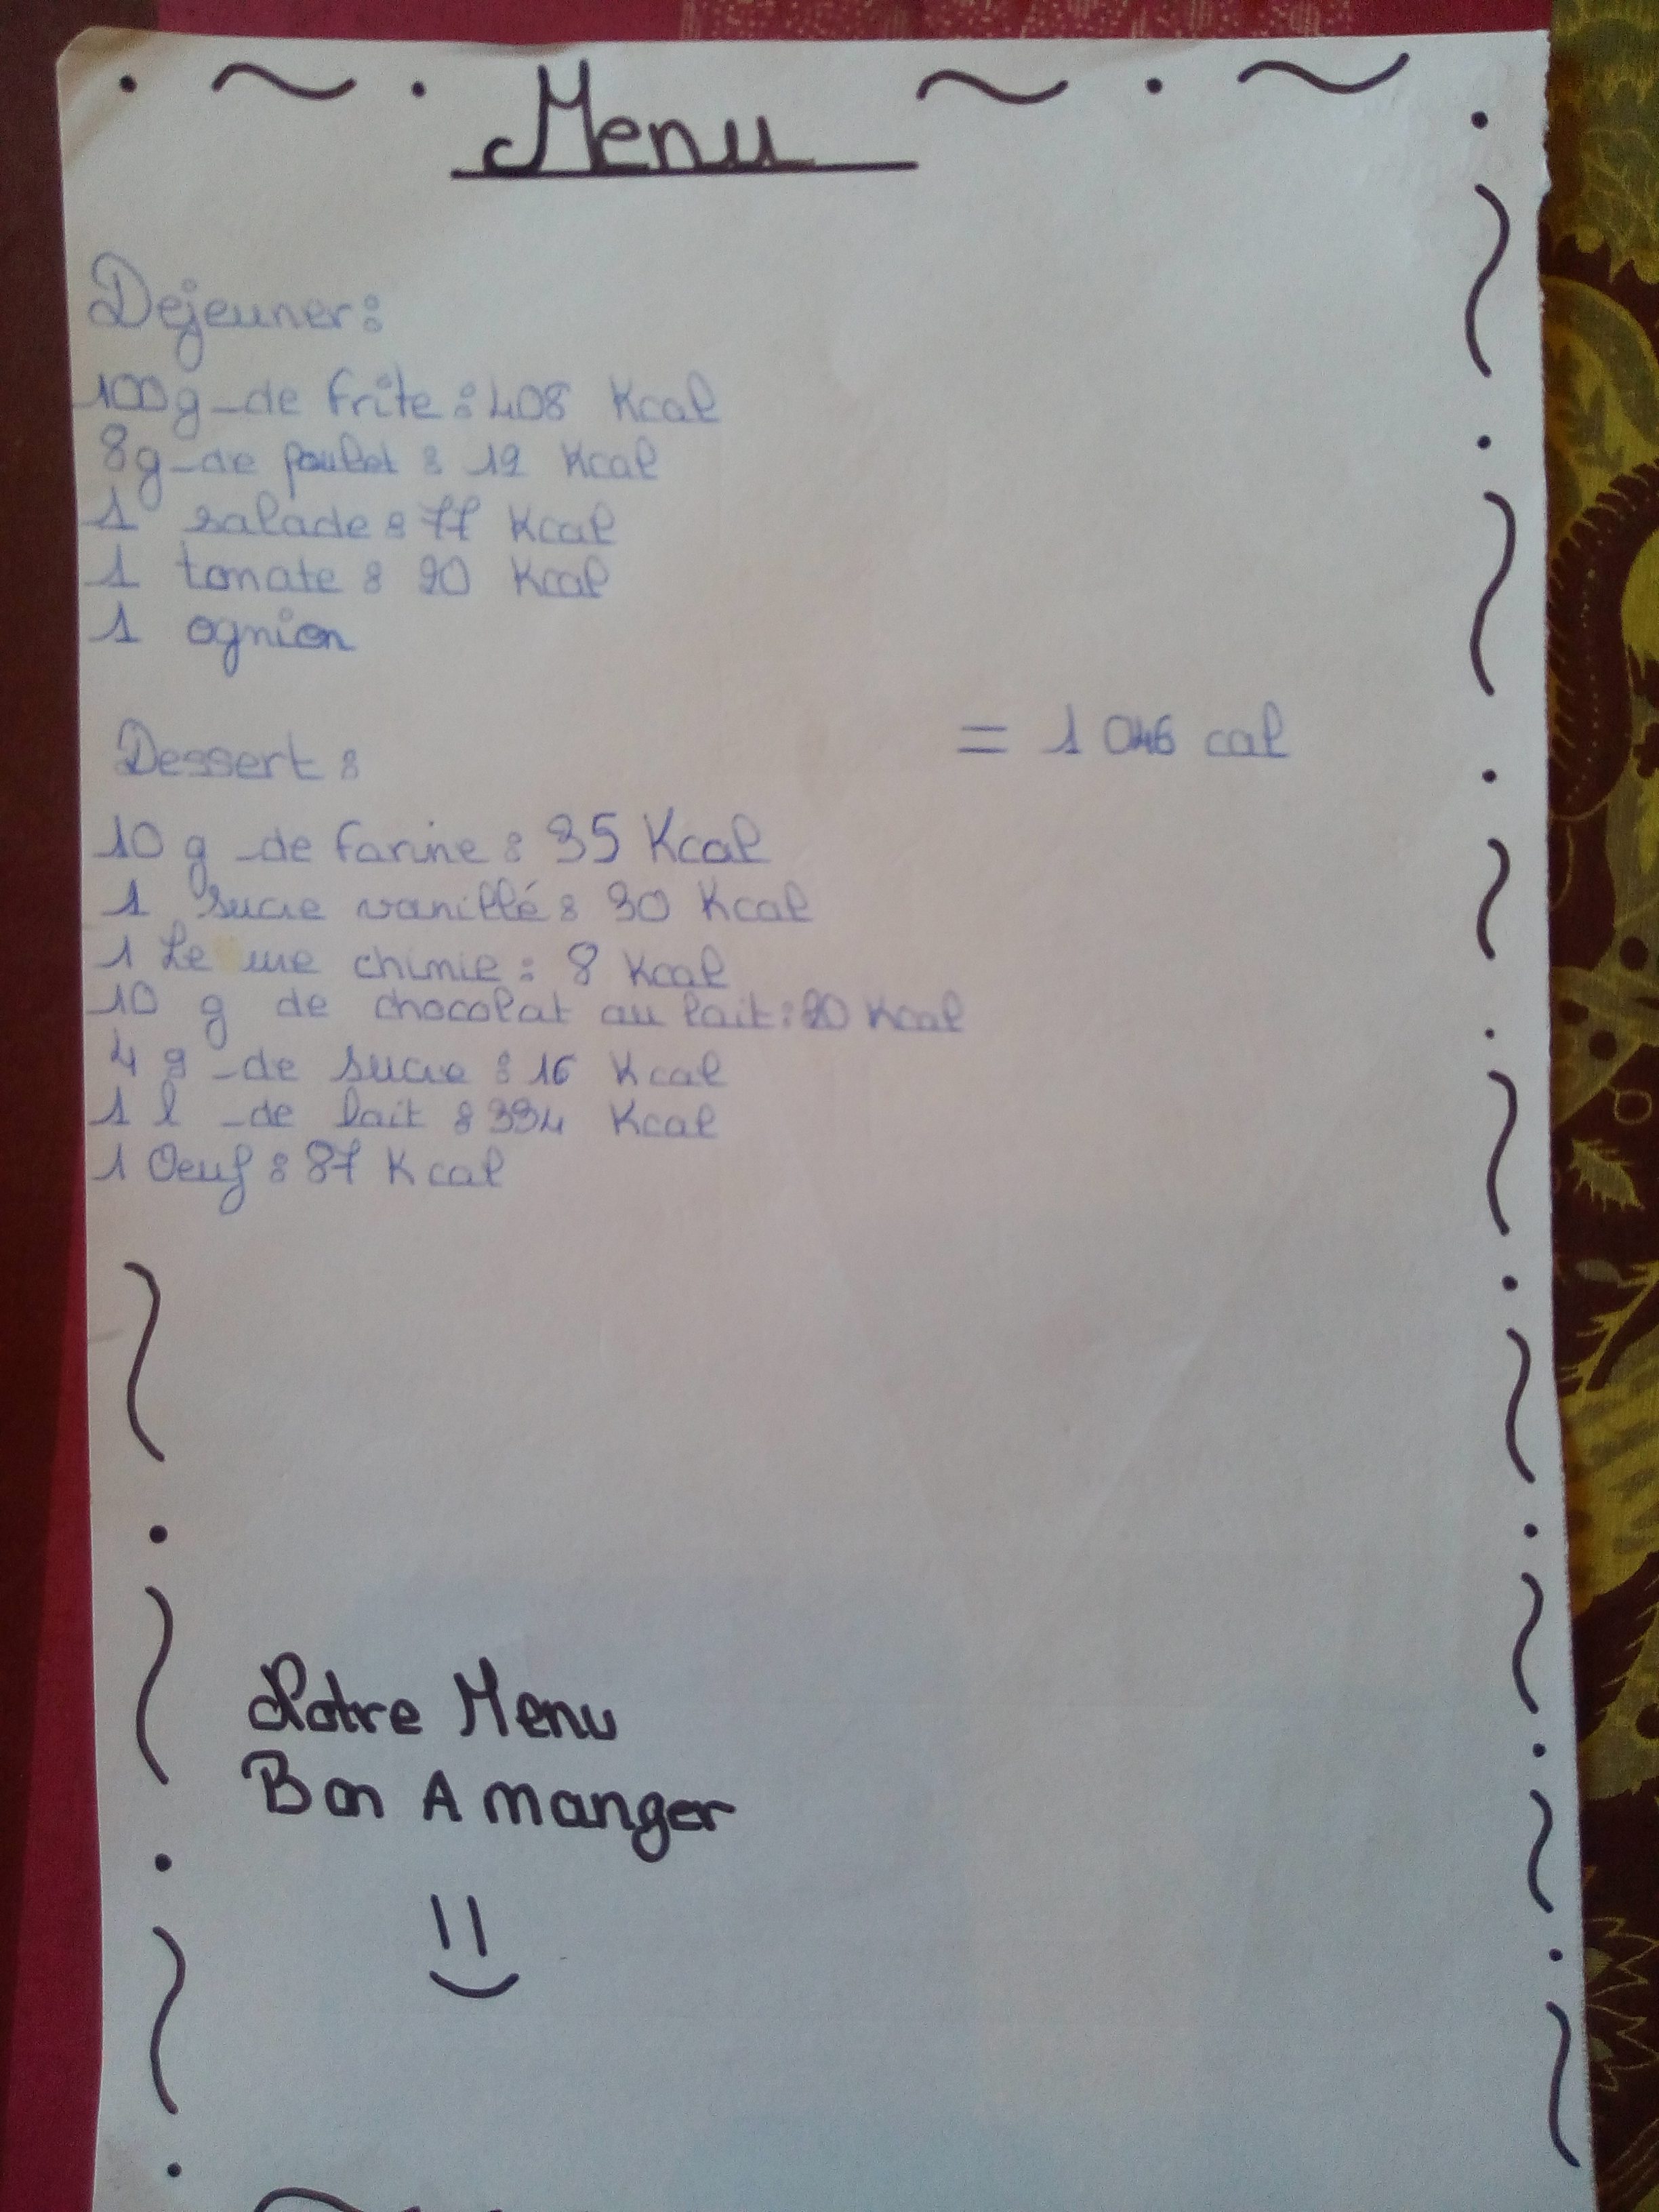 Menu
Dejeuner :
100g de frite : 408 Kcal
8g de poulet : 19 Kcal
1 salade : 77 Kcal
1 tomate : 20 Kcal
1 ognion
= 1 046 cal
Dessert :
10 g de farine : 35 Kcal
1 sucre vanillé : 30 Kcal
1 Le ure chimie : 8 Kcal
10 g de chocolat au lait : Kcal
4 g de sucre : 16 Kcal
1 l de lait : 334 Kcal
1 Oeuf : 87 Kcal
Notre Menu
Bon A manger